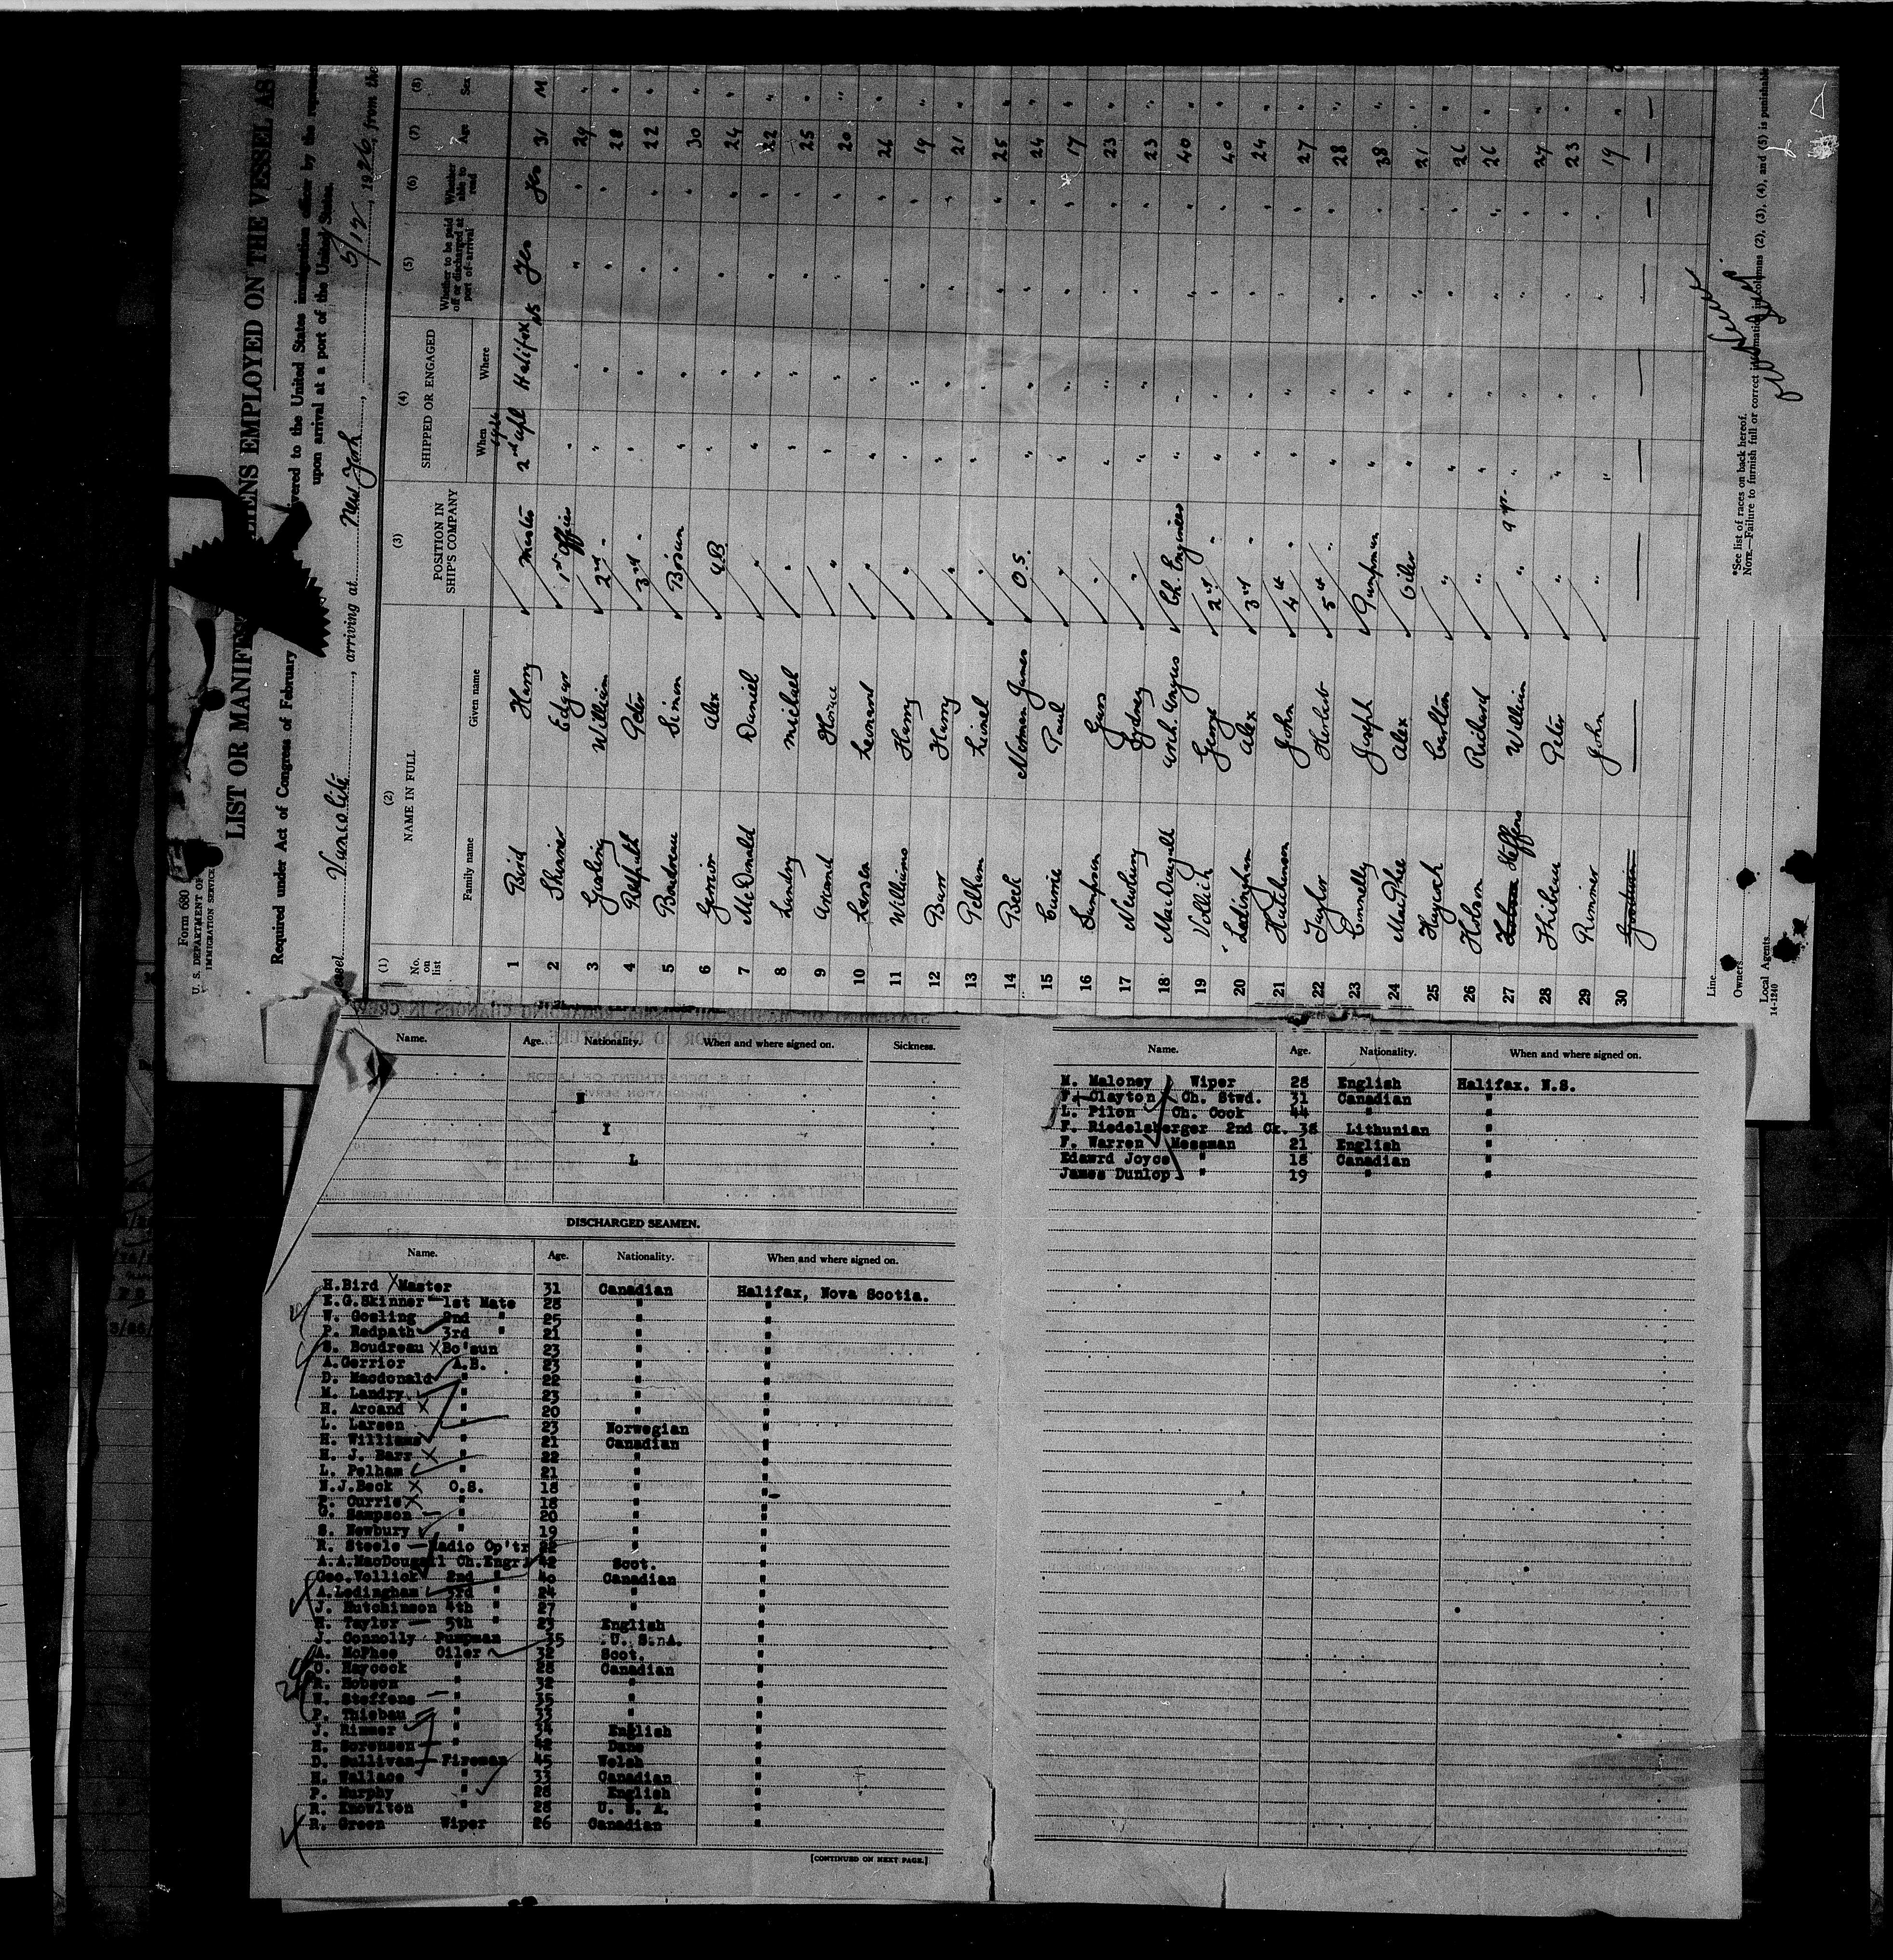 Form 680
U. S. DEPARTMENT OF
IMMIGRATION SERVICE
LIST OR MANIFE ENS EMPLOYED ON THE VESSEL AS
Required under Act of Congress of February vered to the United States immigration officer by the
upon arrival at a port of the United States.
Vessel Vancolite, arriving at New York, 5/12, 1926, from the
(1) (2) (3) (4) (5) (6) (7) (8)
No. on list NAME IN FULL POSITION IN SHIP'S COMPANY SHIPPED OR ENGAGED Whether to be paid off or discharged at port of arrival Whether able to read Age Sex
Family name Given name When Where
1 Bird Harry Master 2nd Apl Halifax NS Yes Yes 31 M
2 Skinner Edgar 1st Officer " " " " 29 "
3 Gosling William 2nd " " " " " 28 "
4 Redpath Peter 3rd " " " " " 22 "
5 Boudreau Simon Bosun " " " " 30 "
6 Gerrior Alex A.B. " " " " 24 "
7 McDonald Daniel " " " " " 22 "
8 Landry Michael " " " " " 25 "
9 Arcand Horace " " " " " 20 "
10 Larsen Leonard " " " " " 26 "
11 Williams Harry " " " " " 19 "
12 Barr Harry " " " " " 21 "
13 Pelham Lionel " " " " " 25 "
14 Beck Norman James O.S. " " " " 24 "
15 Currie Paul " " " " " 17 "
16 Sampson Guss " " " " " 23 "
17 Newbury Sydney " " " " " 23 "
18 MacDougall Arch. Angus Ch. Engineer " " " " 40 "
19 Vollick George 2nd " " " " " 40 "
20 Ledingham Alex 3rd " " " " " 24 "
21 Hutchinson John 4th " " " " " 27 "
22 Taylor Herbert 5th " " " " " 28 "
23 Connelly Joseph Pumpman " " " " 38 "
24 MacPhee Alex Oiler " " " " 21 "
25 Haycock Carlton " " " " " 26 "
26 Hobson Richard " " " " " 26 "
27 Steffens William " " " " "
28 Thibeau Peter " " " " " "
29 Rimmer John " " " " " "
30
Line
Owners
Local Agents
14-1240
*See list of races on back hereof.
NOTE.—Failure to furnish full or correct information in columns (2), (3), (4), and (5) is punishable
Name. Age. Nationality. When and where signed on. Sickness.
N
I
L
DISCHARGED SEAMEN.
Name. Age. Nationality. When and where signed on.
H.Bird Master 31 Canadian Halifax, Nova Scotia.
E.G.Skinner 1st Mate 28 " "
W. Gosling 2nd " 25 " "
P. Redpath 3rd " 21 " "
S. Boudreau Bo'sun 23 " "
A.Gerrior A.B. 23 " "
D. Macdonald " 22 " "
M. Landry " 23 " "
H. Arcand " 20 " "
L. Larsen " 23 Norwegian "
H. Williams " 21 Canadian "
H. J. Barr " 22 " "
L. Pelham " 21 " "
N.J.Beck O.S. 18 " "
P. Currie " 18 " "
G. Sampson " 20 " "
S. Newbury " 19 " "
R. Steele Radio Op'tr " "
A.A.MacDougall Ch.Engr. 42 Scot. "
Geo.Vollick 2nd " 40 Canadian "
A.Ledingham 3rd " 24 " "
J. Hutchinson 4th " 27 " "
H. Taylor 5th " 23 English "
J. Connolly Pumpman 35 U. S. A. "
A. McPhee Oiler 32 Scot. "
C. Haycock " 28 Canadian "
R. Hobson " 32 " "
W. Steffens " 35 " "
P. Thiebau " 33 " "
J. Rimmer " 34 English "
N. Sorensen " 42 Dane "
D. Sullivan Fireman 45 Welsh "
H. Wallace " 33 Canadian "
P. Murphy " 28 English "
R. Knowlton " 28 U. S. A. "
R. Green Wiper 26 Canadian "
[CONTINUED ON NEXT PAGE.]
Name. Age. Nationality. When and where signed on.
M. Maloney Wiper 28 English Halifax. N.S.
F. Clayton Ch. Stwd. 31 Canadian "
L. Pilon Ch. Cook 44 " "
F. Riedelsberger 2nd Ck. 38 Lithunian "
F. Warren Messman 21 English "
Edawrd Joyce " 18 Canadian "
James Dunlop " 19 " "